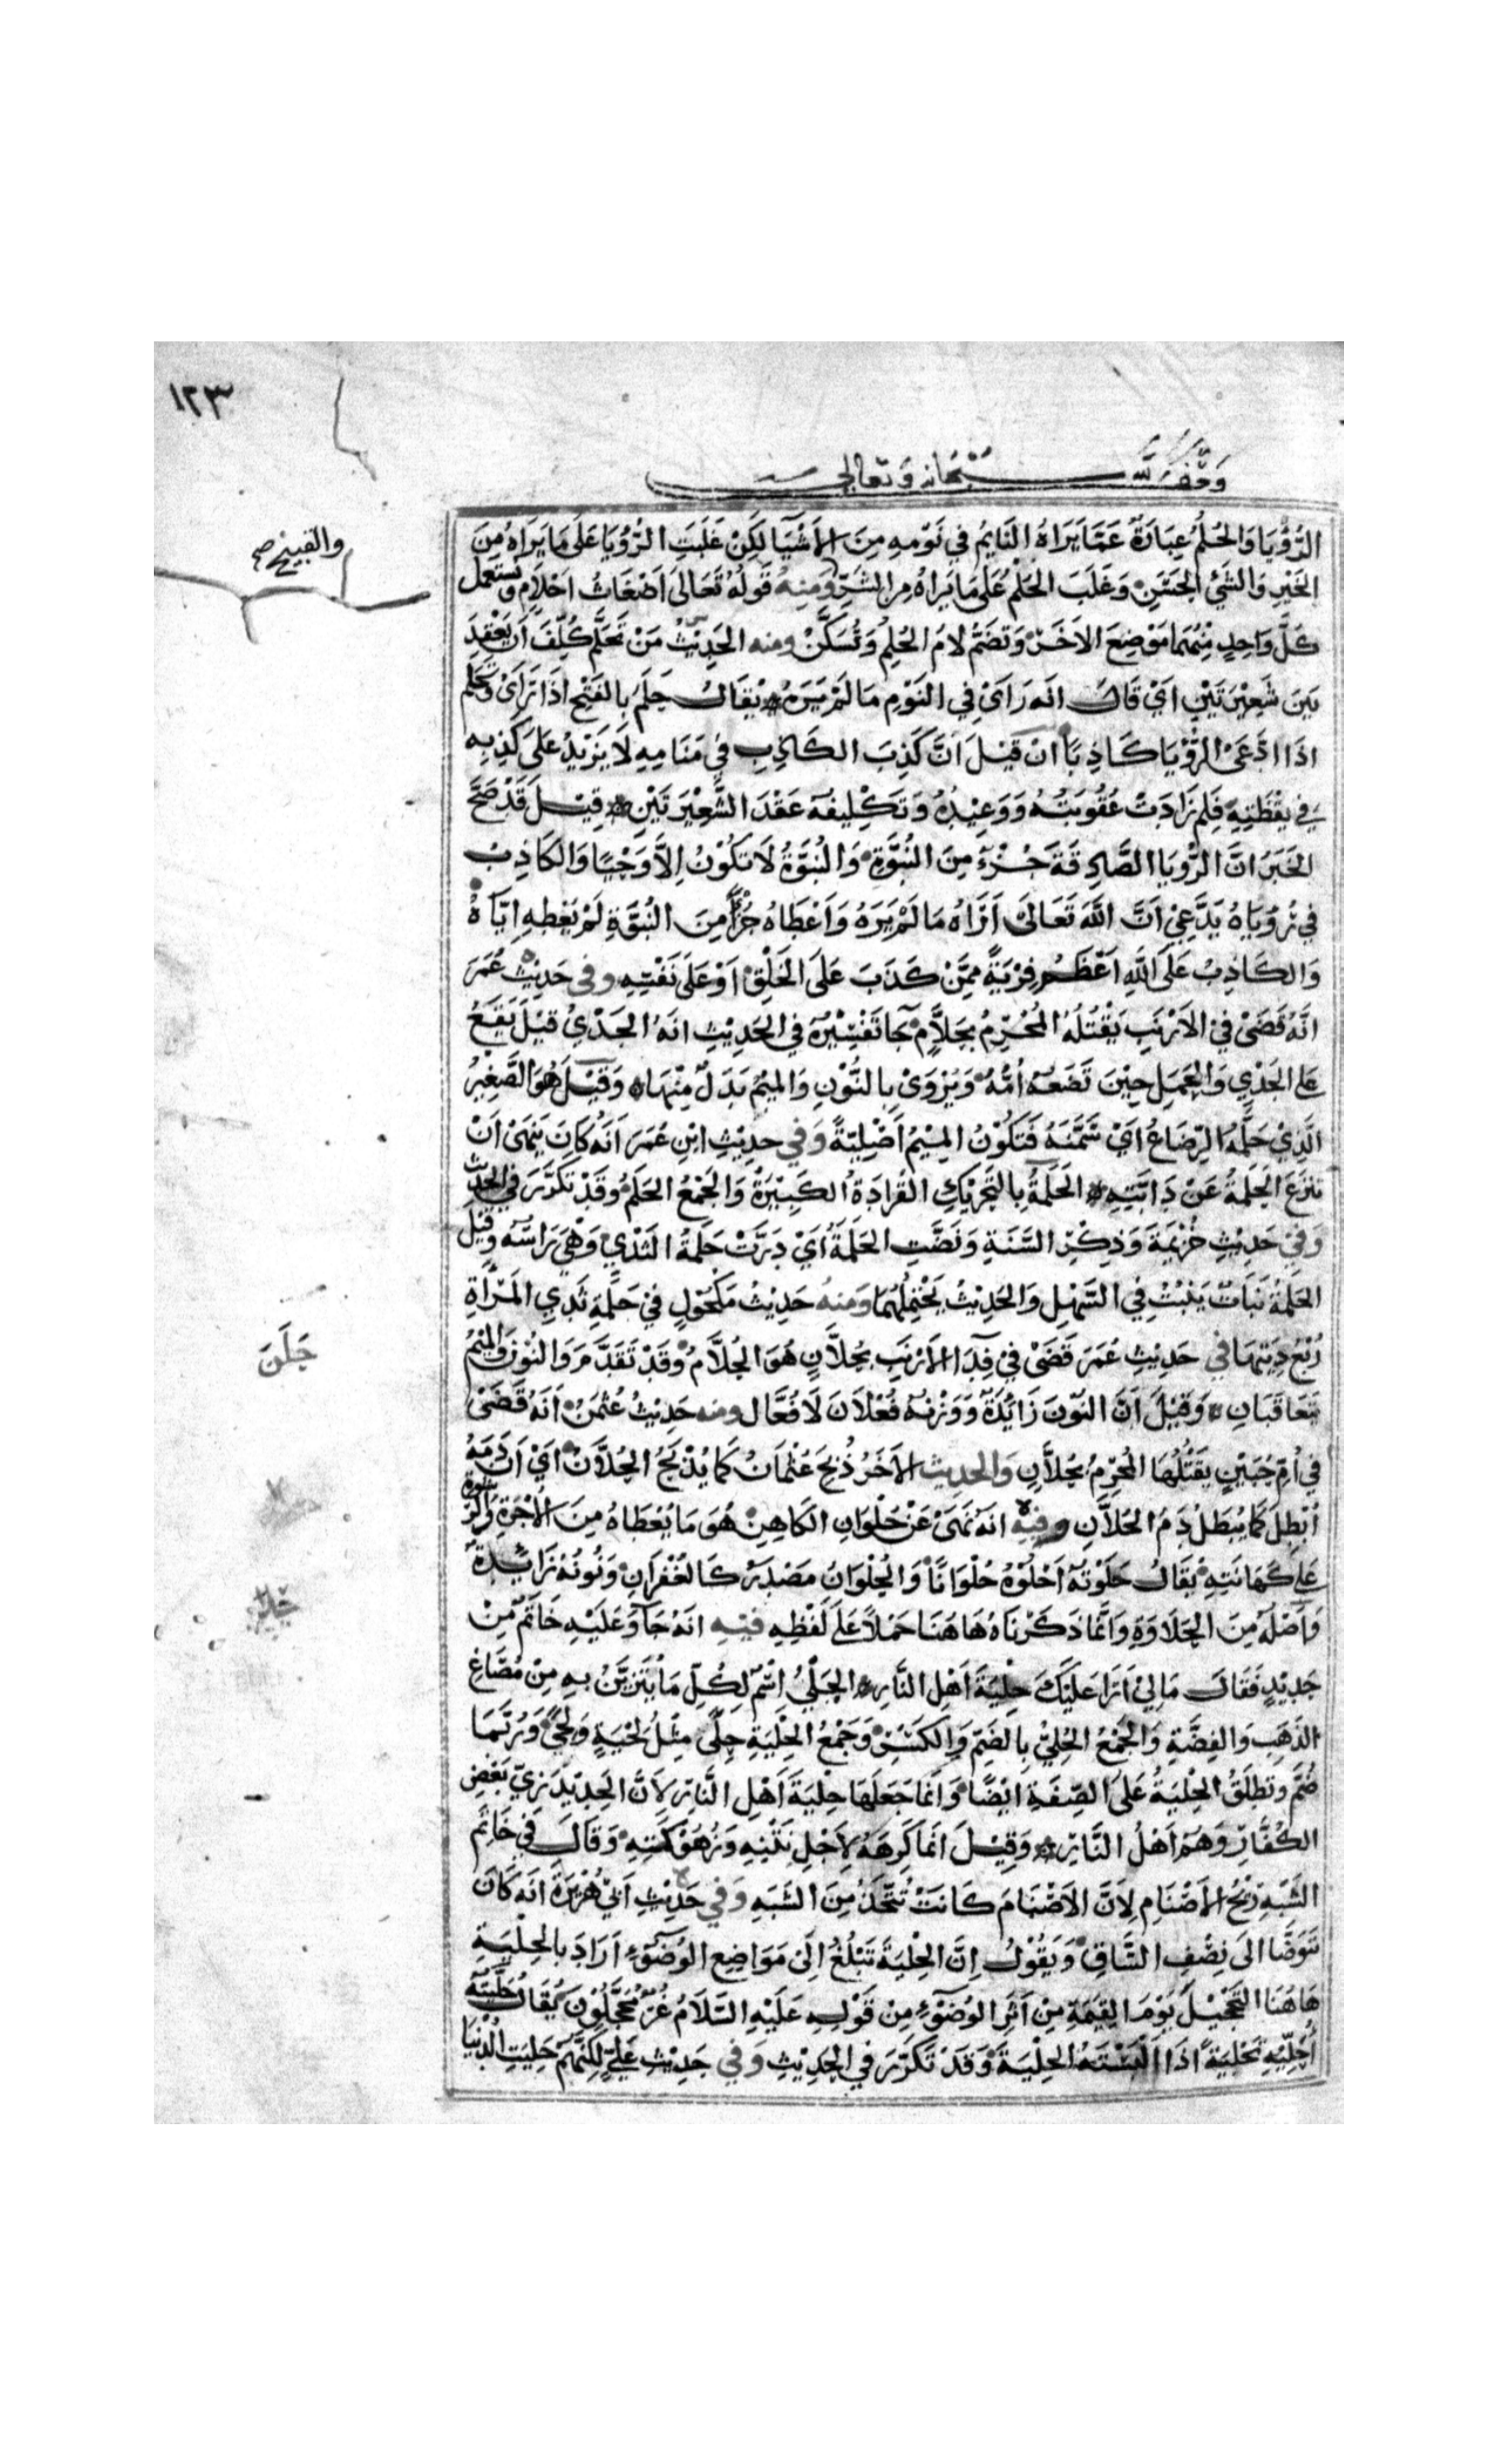 ١٢٣
وَقْفٌ لله سُبْحَانه وَتعالى
الرُّؤْيَا وَالحُلْمُ عِبَارَةٌ عَمَّا يَرَاهُ النَّايِمُ فِي نَوْمِهِ مِنَ الأَشْيَآ لَكِنْ غَلَبَتِ الرُّؤْيَا عَلَى مَا يَرَاهُ مِنَ
والقبيح صح
الخَيْرِ وَالشَّيْ الحَسَنِ وَغَلَبَ الحُلْمُ عَلَى مَا يَرَاهُ مِنَ الشَّرِّ وَمِنهُ قَوْلُهُ تَعَالَى اَضْغَاثُ اَحْلَامٍ وَيُستَعمل
كُلُّ وَاحِدٍ مِنْهُمَا مَوْضِعَ الاَخَرْ وَتُضَمُّ لَامُ الحُلُمِ وَتُسَكَّنْ ومنه الحَدِيْثُ مَنْ تَحَلَّمَ كُلِّفَ اَنْ يَعْقِدَ
بَيْنَ شَعِيْرَتَيْنِ اَيْ قَالَ انَه رَاَى فِي النَّوْمِ مَا لَمْ يَرَهُ يُقَالُ حَلَمَ بِالفَتْحِ اذَا رَاَىْ وَتَحَلَّمَ
اذَا ادَّعَى الرُّؤْيَا كَاذِبًا اِنْ قِيْلَ اَنَّ كَذِبَ الكَاذِبِ فِي مَنَامِهِ لَا يَزِيْدُ عَلَى كَذِبِهِ
فِي يَقْظَتِهِ فَلِمَ زَادَتْ عُقُوبَتُهُ وَوَعِيْدُهُ وَتَكْلِيفُه عَقْدَ الشَّعِيْرَتَيْنِ قِيْلَ قَدْ صَحَّ
الخَبَرُ انَّ الرُّؤْيَا الصَّادِقَةَ جُزْءٌ مِنَ النُّبُوَّةِ وَالنُّبُوَّةُ لَا تَكُوْنُ اِلَّا وَحْيًا وَالكَاذِبُ
فِي رُؤيَاهُ يَدَّعِيْ اَنَّ اللَّهَ تَعَالَى اَرَاهُ مَا لَمْ يَرَهُ وَاَعْطَاهُ جُزْأً مِنَ النُّبُوَّةِ لَمْ يُعْطِهِ اِيَّاهُ
وَالكَاذِبُ عَلَى اللَّهِ اَعْظَمُ فِرْيَةً مِمَّنْ كَذَبَ عَلَى الخَلْقِ اَوْ عَلَى نَفْسِهِ وفى حَدِيْثِ عُمَرَ
انَّهُ قَضَىْ فِيْ الاَرْنَبِ يَقْتُلُهُ المُحْرِمُ بِحُلَّامٍ جَا تَفْسِيْرُه فِي الحَدِيْثِ انَهُ الجَدْيُ قِيْلَ يَقَعُ
عَلى الجَدْيِ وَالحَمَلِ حِيْنَ تَضَعُهُ اُمُّهُ وَيُرْوَىْ بِالنُّوْنِ وَالمِيْمُ بَدَلٌ مِنْهَا وَقِيْلَ هُوَ الصَّغِيْرُ
الَّذِيْ حَلَّمَهُ الرَّضَاعُ اَىْ سَمَّنَهُ فَتَكُوْنُ المِيْمُ اَصْلِيَّةً وَفي حدِيْثِ ابْنِ عُمَرَ انَّهُ كَانَ يَنْهَىْ اَنْ
تُنْزَعَ الحَلَمَةُ عَنْ دَابَّتِهِ الحَلَمَةُ بِالتَّحْرِيْكِ القُرَادَةُ الكَبِيْرَةُ وَالجَمْعُ الحَلَمُ وَقَدْ تَكَرَّرَ فِي الحَدِيْث
وَفِيْ حَدِيْثِ خُزَيْمَةَ وَذِكْرِ السَّنَةِ وَنَضَّتِ الحَلَمَةُ اَيْ دَرَّتْ حَلَمَةُ الثَّدْيِ وَهْيَ رَاسُهُ وَقِيْلَ
الحَلَمَةُ نَبَاتٌ يَنْبُتُ فِي السَّهْلِ وَالحَدِيْثُ يَحْتَمِلُهُمَا وَمنهُ حَدِيْثُ مَكْحُوْلٍ فِيْ حَلَمَةِ ثَدِي المَرْاَةِ
حَلَن
رُبْعُ دِيَتِهَا في حَدِيْثِ عُمَرَ قَضَىْ فِيْ فِدَآ الأَرْنَبِ بِحُلَّانٍ هُوَ الحُلَّامُ وَقَدْ تَقَدَّمَ وَالنُوْنُ وَالمِيْمُ
يَتَعَاقَبَانِ وَقِيْلَ اَنَّ النُّوْنَ زَائِدَةٌ وَوَزْنُهُ فُعْلَانَ لَا فُعَّال ومنه حَدِيْثُ عُثْمَنْ اَنَهُ قَضَىْ
فِي اُمِّ حُبَيْنٍ يَقْتُلُهَا المُحْرِمُ بِحُلَّانٍ وَالحدِيث الاَخَرُ ذُبِحَ عُثْمَانُ كَمَا يُذْبَحُ الحُلَّانُ اَيْ اَنَّ دَمَهُ
اُبْطِلَ كَمَا يُبْطَلُ دَمُ الحُلَّانِ وفيه انَهُ نَهَىْ عَنْ حُلْوَانِ الكَاهِنِ هُوَ مَا يُعْطَاهُ مِنَ الأُجْرَةِ وَالرِّشْوَة
حلا
عَلَى كَهَانَتِهِ يُقَالُ حَلَوْتُهُ اَحْلُوْهُ حُلْوَانًا وَالحُلْوَانُ مَصْدَرٌ كَالغُفْرَانِ وَنُونُهُ زَائِدَةٌ
وَاَصْلُهُ مِنَ الحَلَاوَةِ وَانَّمَا ذَكَرْنَاهُ هَاهُنَا حَمْلاً عَلَى لَفْظِهِ فيهِ انَهُ جَآ وَعَلَيْهِ خَاتَمٌ مِنْ
حَدِيْدٍ فَقَالَ مَا لِيْ اَرَا عَلَيْكَ حِلْيَةَ اَهْلِ النَّارِ الحَلْيُ اسْمٌ لِكُلِّ مَا يُتَزَيَّنُ بِهِ مِنْ مَصَاغِ
الذَّهَبِ وَالفِضَّةِ وَالجَمْعُ الحُلِيُّ بِالضَّمِّ وَالكَسْرِ وَجَمْعُ الحِلْيَةِ حِلًى مِثْلُ لِحْيَةٍ وَلِحًى وَرُبَّمَا
ضُمَّ وَتُطْلَقُ الحِلْيَةُ عَلَى الصِّفَةِ ايْضًا وَانَّمَا جَعَلَهَا حِلْيَةَ اَهْلِ النَّارِ لِاَنَّ الحَدِيْدَ زِيُّ بَعْضِ
الكُفَّارِ وَهُمْ اَهْلُ النَّارِ وَقِيْلَ انَّمَا كَرِهَهُ لِاَجْلِ نَتْنِهِ وَزُهُوْكَتِهِ وَقَالَ فِي خَاتِمِ
الشَّبَهِ رِيْحُ الاَصْنَامِ لِاَنَّ الاَصْنَامَ كَانَتْ تُتَّخَذُ مِنَ الشَّبَهِ وَفي حَدِيْثِ اَبِيْ هُرَيْرَةَ انَه كَانَ
يَتَوَضَّا الَى نِصْفِ السَّاقِ وَيَقُوْلُ اِنَّ الحِلْيَةَ تَبْلُغُ الَىْ مَوَاضِعِ الوُضُوْءِ اَرَادَ بالحِلْيَةِ
هَاهُنَا التَّحْجِيْلَ يَوْمَ القِيَمَةِ مِنْ اَثَرِ الوُضُوْءِ مِنْ قَوْلِهِ عَلَيْهِ السَّلَامُ غُرٌّ مُحَجَّلُوْنَ يُقَالُ حَلَّيْتُهُ
اُحَلِّيْهِ تَحْلِيَةً اذَا اَلْبَسْتَهُ الحِلْيَةَ وَقَدْ تَكَرَّرَ فِي الحَدِيْثِ وَفي حَدِيْثِ عَلِيٍّ لَكِنَّهُمْ حَلِيَتِ الدُّنْيَا